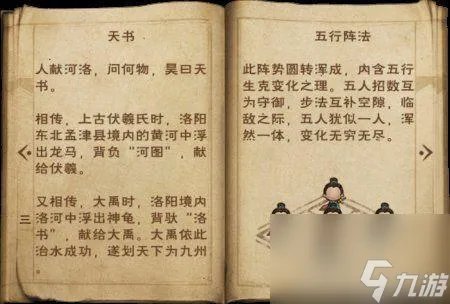 天书
人献河洛，问何物，昊曰天
书。
相传，上古伏羲氏时，洛阳
东北孟津县境内的黄河中浮
出龙马，背负“河图”，献
给伏羲。
又相传，大禹时，洛阳境内
洛河中浮出神龟，背驮“洛
书”，献给大禹。大禹依此
治水成功，遂划天下为九州
三
五行阵法
此阵势圆转浑成，内含五行
生克变化之理。五人招数互
为守御，步法互补空隙，临
敌之际，五人犹似一人，浑
然一体，变化无穷无尽。
九游